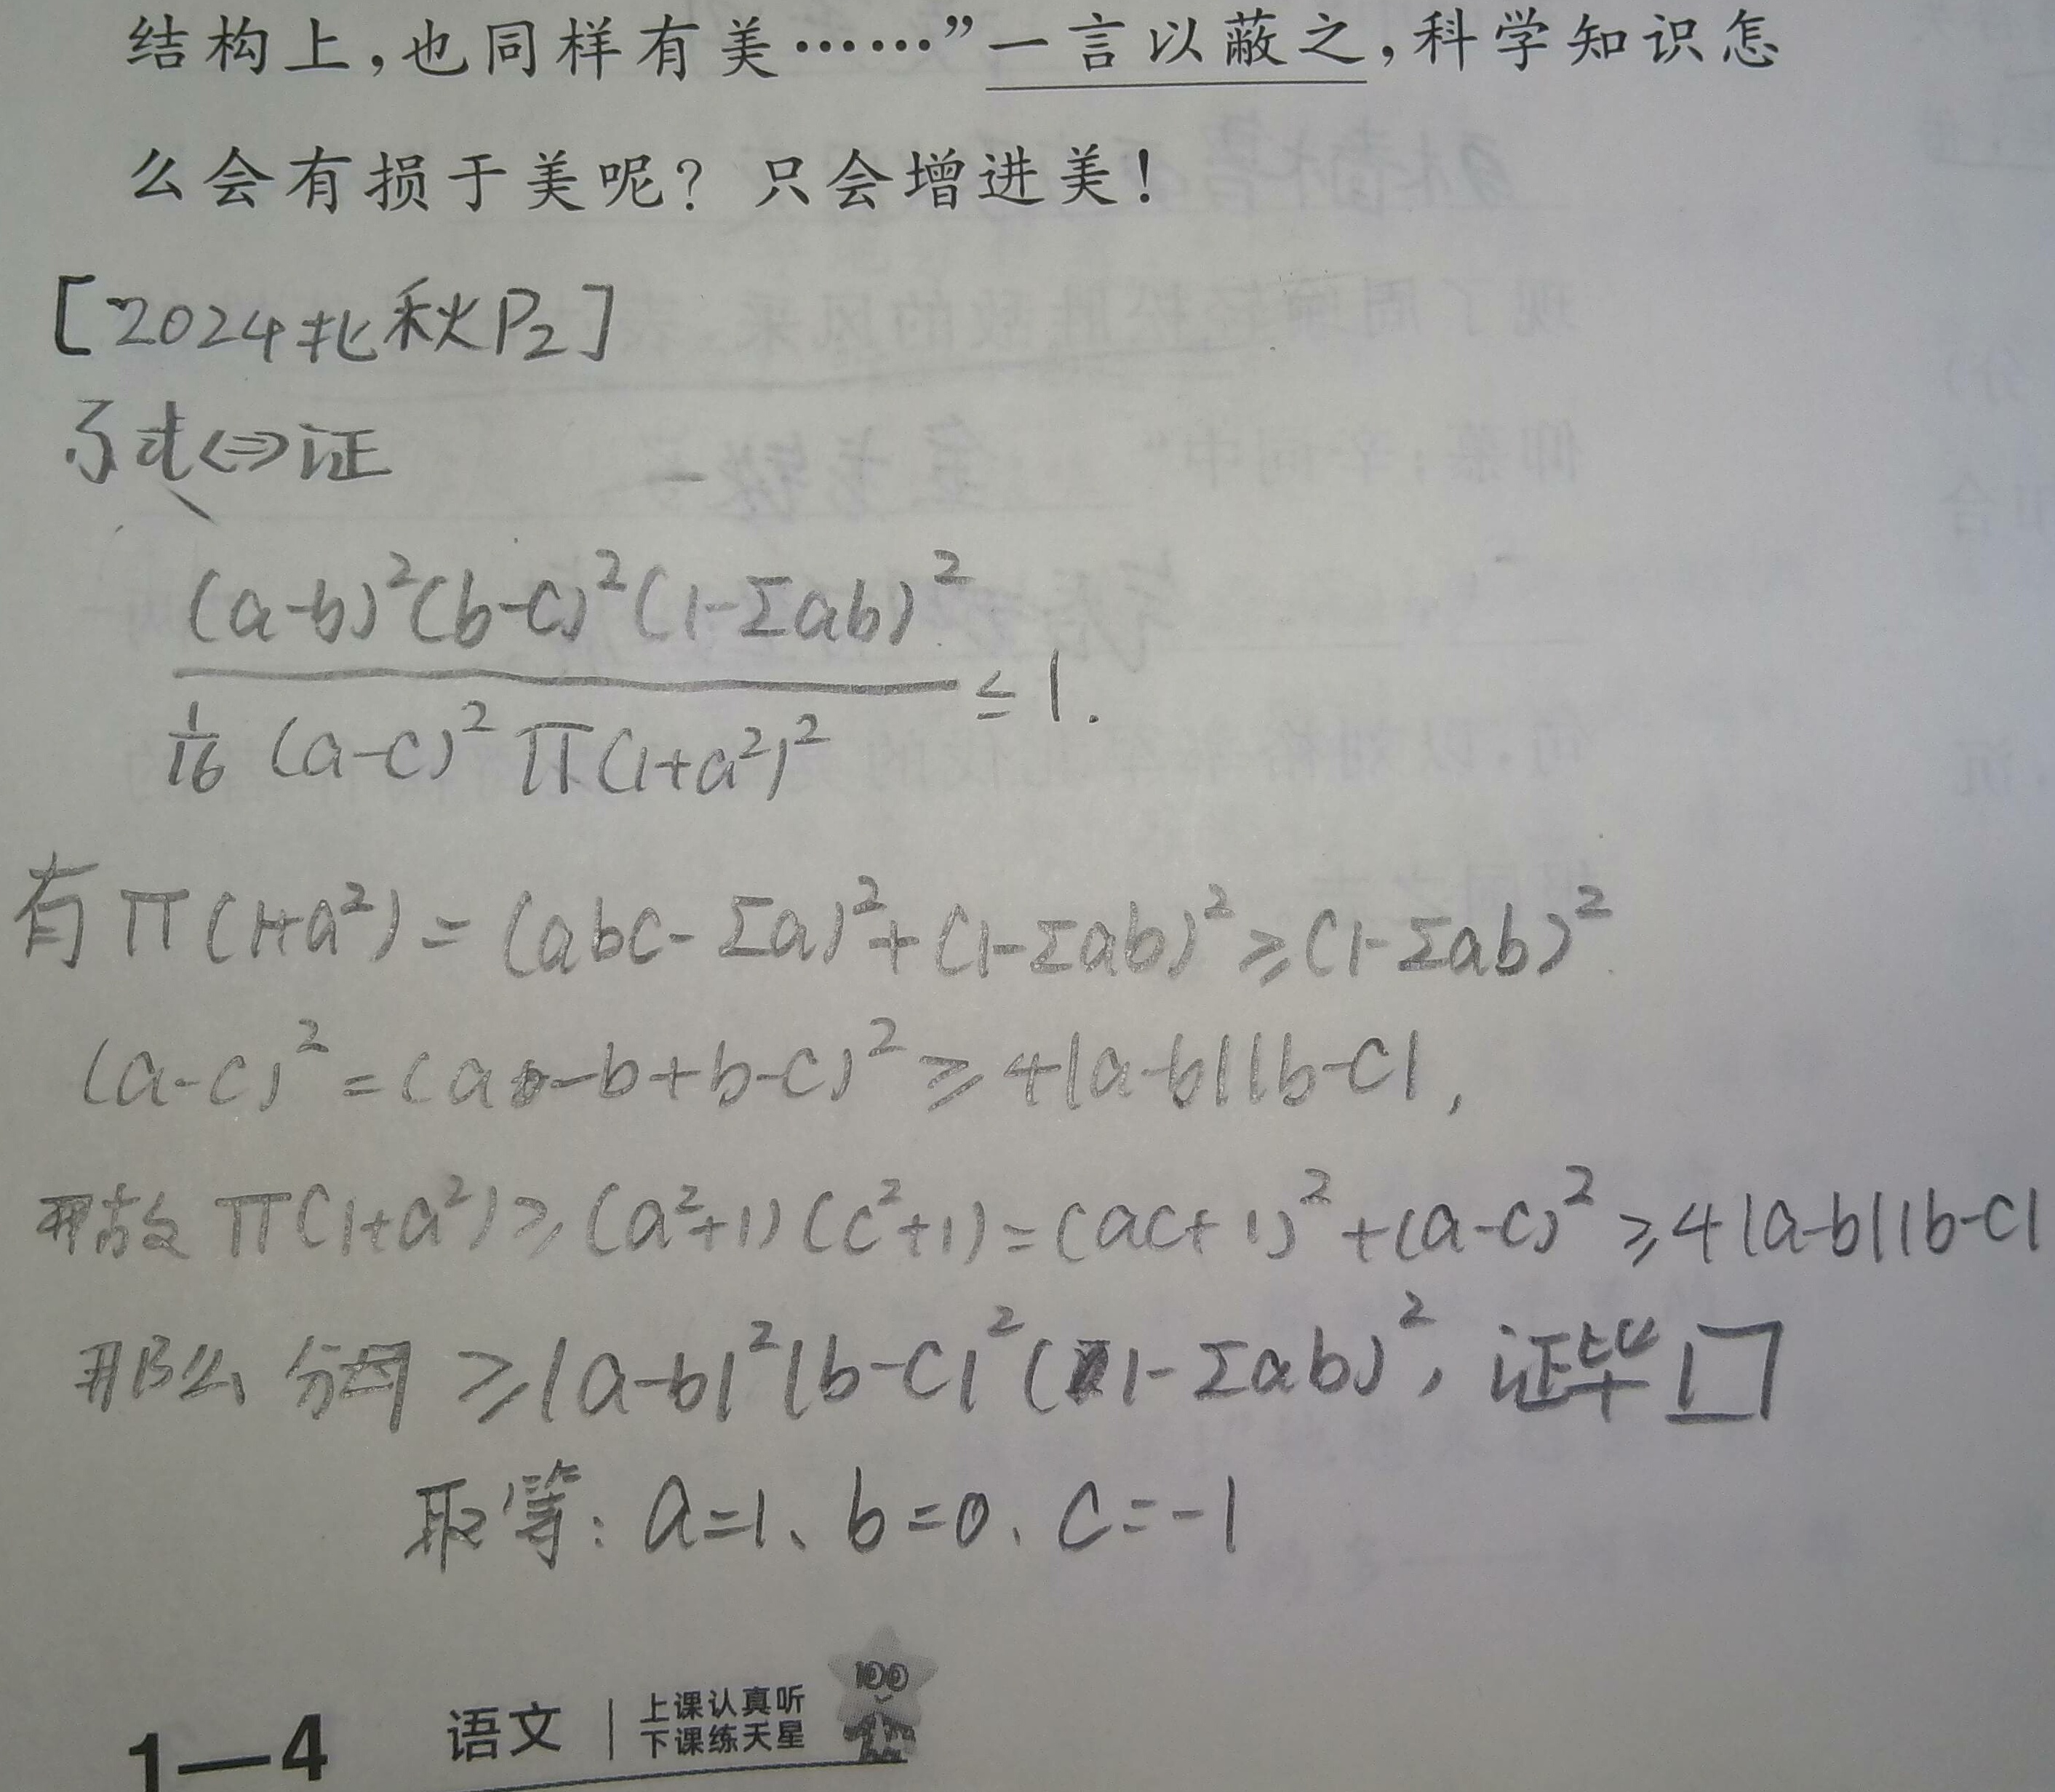 结构上,也同样有美……”一言以蔽之,科学知识怎
么会有损于美呢?只会增进美!
[2024北秋P₂]
原式⇔证
(a-b)²(b-c)²(1-Σab)²
1/16 (a-c)² Π(1+a²)² ≤ 1.
有 Π(1+a²) = (abc-Σa)²+(1-Σab)² ≥ (1-Σab)².
(a-c)² = (a-b+b-c)² ≥ 4|a-b||b-c|,
故 Π(1+a²) ≥ (a²+1)(c²+1) = (ac+1)²+(a-c)² ≥ 4|a-b||b-c|
那么 分母 ≥ |a-b|²|b-c|²(1-Σab)², 证毕 □
取等: a=1、b=0、c=-1
1—4 语文 | 上课认真听
下课练天星
100